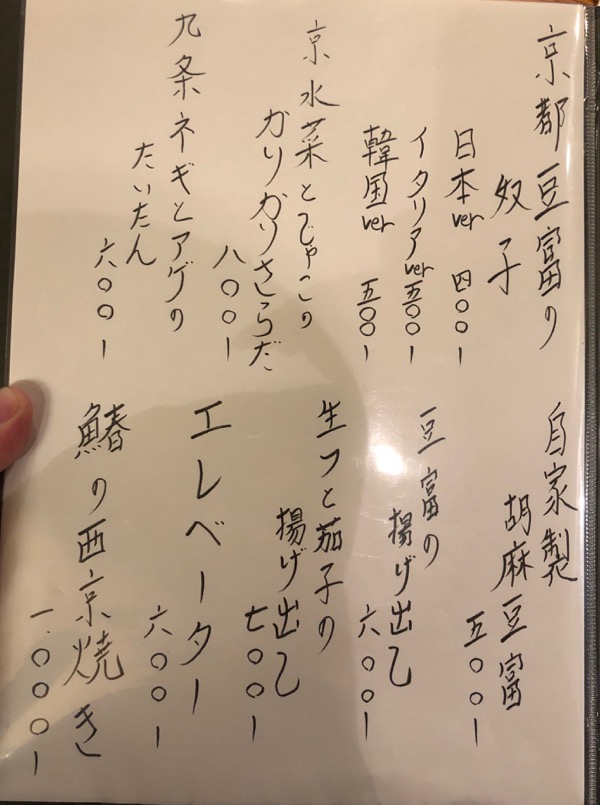 京都豆富の
奴子
日本ver 四〇〇ー
イタリアver 五〇〇ー
韓国ver 五〇〇ー
京水菜とじゃこの
かりかりさらだ
八〇〇ー
九条ネギとアゲの
たいたん
六〇〇ー
自家製
胡麻豆富
五〇〇ー
豆富の
揚げ出し
六〇〇ー
生フと茄子の
揚げ出し
七〇〇ー
エレベーター
六〇〇ー
鰆の西京焼き
一.〇〇〇ー